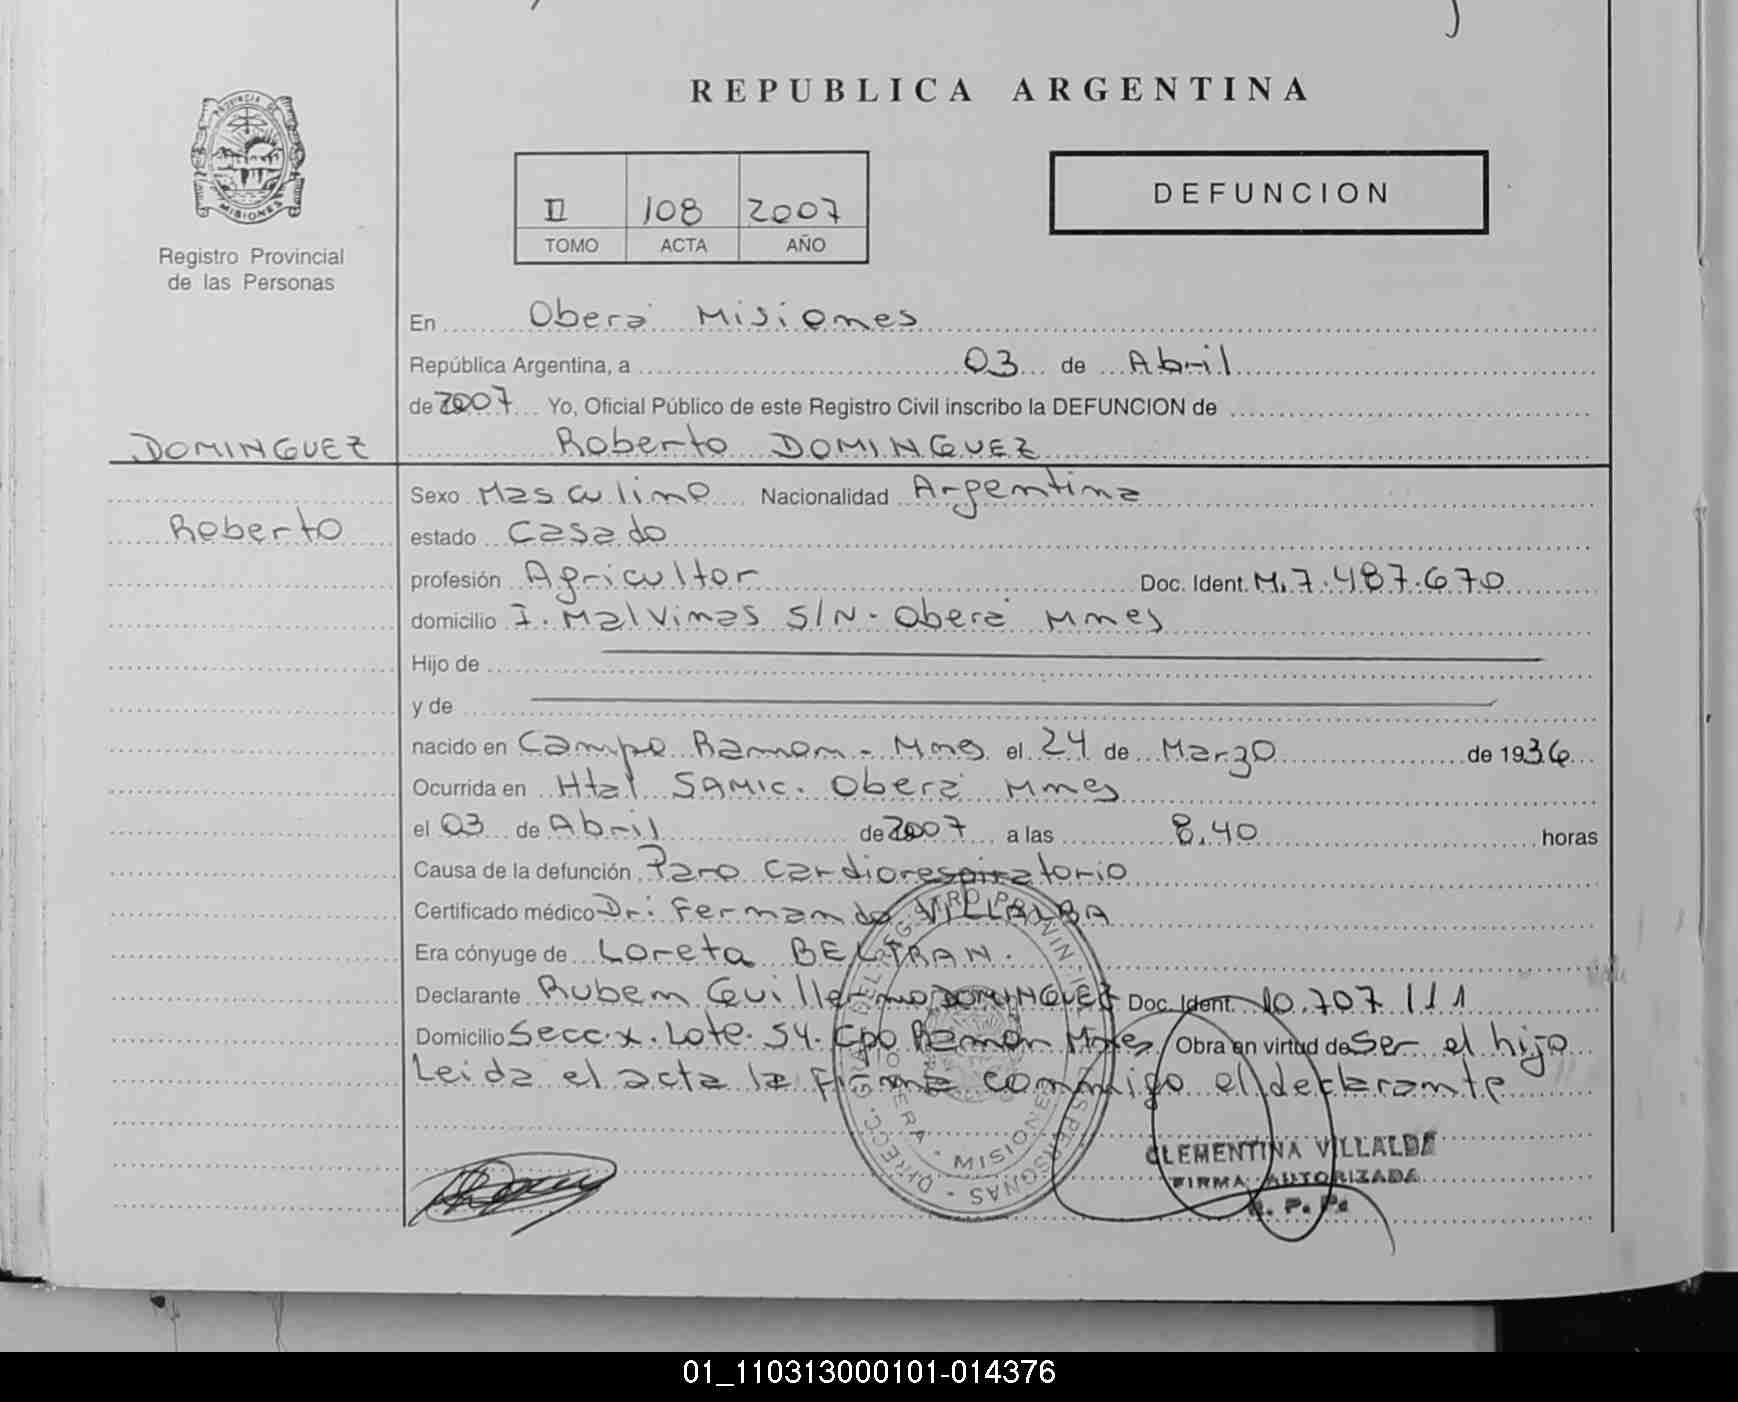 REPUBLICA ARGENTINA
PROVINCIA DE
MISIONES
Registro Provincial
de las Personas
II 108 2007
TOMO ACTA AÑO
DEFUNCION
En Oberá Misiones
República Argentina, a 03 de Abril
de 2007 Yo, Oficial Público de este Registro Civil inscribo la DEFUNCION de
DOMINGUEZ
Roberto DOMINGUEZ
Roberto
Sexo Masculino Nacionalidad Argentina
estado Casado
profesión Agricultor Doc. Ident. M. 7.487.670
domicilio I. Malvinas S/N - Oberá Mnes
Hijo de
y de
nacido en Campo Ramon - Mnes el 24 de Marzo de 1936
Ocurrida en Htal SAMIC. Oberá Mnes
el 03 de Abril de 2007 a las 8.40 horas
Causa de la defunción Paro cardiorespiratorio
Certificado médico Dr: Fernando VILLALBA
Era cónyuge de Loreta BELTRAN.
Declarante Ruben Guillermo DOMINGUEZ Doc. Ident. 10.707.111
Domicilio Secc. X. Lote. 54. Cpo Ramon Mnes Obra en virtud de Ser el hijo
Leida el acta la firma conmigo el declarante
MISIONES
CLEMENTINA VILLALBA
FIRMA AUTORIZADA
R. P. P.
01_110313000101-014376